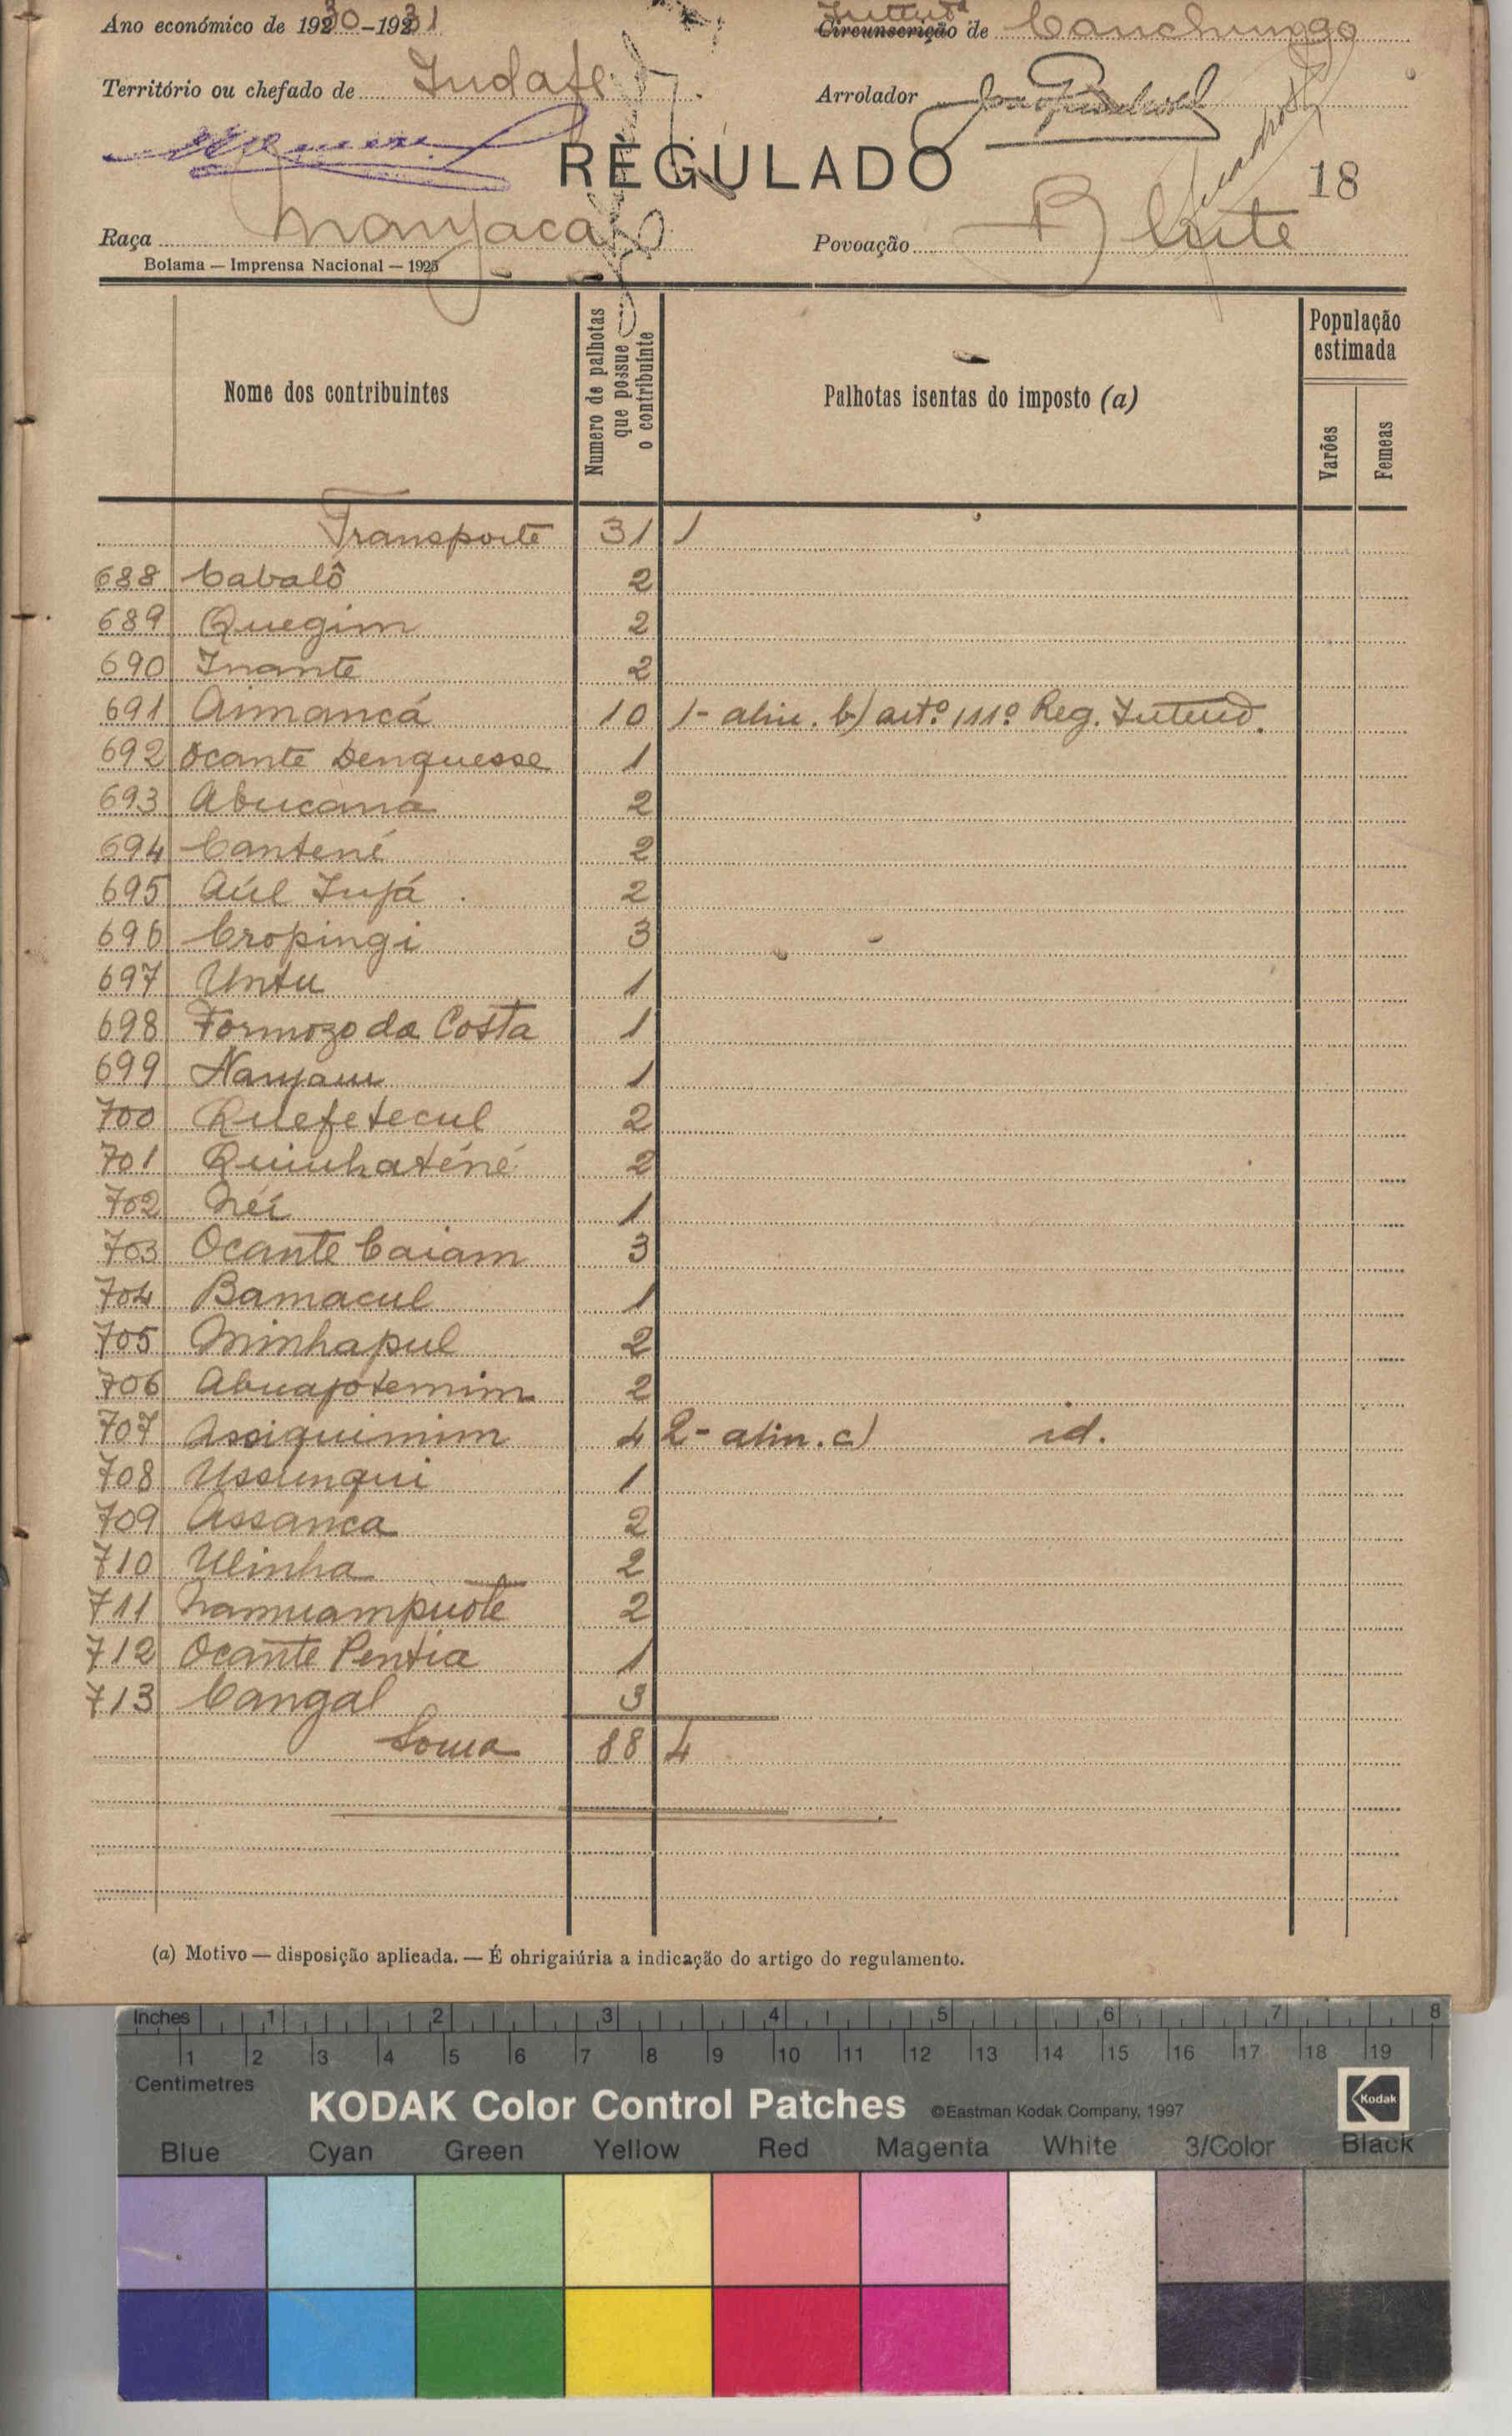 Ano económico de 1930-1931 Intendª de Canchungo
Território ou chefado de Indafe Arrolador
REGULADO 18
Raça Manjaca Povoação
Bolama — Imprensa Nacional — 1925
Nome dos contribuintes
Numero de palhotas que possue o contribuinte
Palhotas isentas do imposto (a)
População estimada
Varões Femeas
Transporte 31 1
688 Cabalô 2
689 Quegim 2
690 Inante 2
691 Aimancá 10 1- alin. b) artº 111º Reg. Intend.
692 Ocante Denquesse 1
693 Abucana 2
694 Cantené 2
695 Aúl Jujá 2
696 Cropingi 3
697 Untu 1
698 Formozo da Costa 1
699 Nanjam 1
700 Quefetecul 2
701 Quinhaténé 2
702 Néi 1
703 Ocante Caiam 3
704 Bamacul 1
705 Minhapul 2
706 Abuapotemim 2
707 Assiquimim 4 2- alin. c) id.
708 Ussunqui 1
709 Assanca 2
710 Ulinha 2
711 Namuampuote 2
712 Ocante Pentia 1
713 Cangal 3
Soma 88 4
(a) Motivo — disposição aplicada. — É ohrigaiúria a indicação do artigo do regulamento.
Inches 1 2 3 4 5 6 7 8
1 2 3 4 5 6 7 8 9 10 11 12 13 14 15 16 17 18 19
Centimetres
KODAK Color Control Patches ©Eastman Kodak Company, 1997 Kodak
Blue Cyan Green Yellow Red Magenta White 3/Color Black